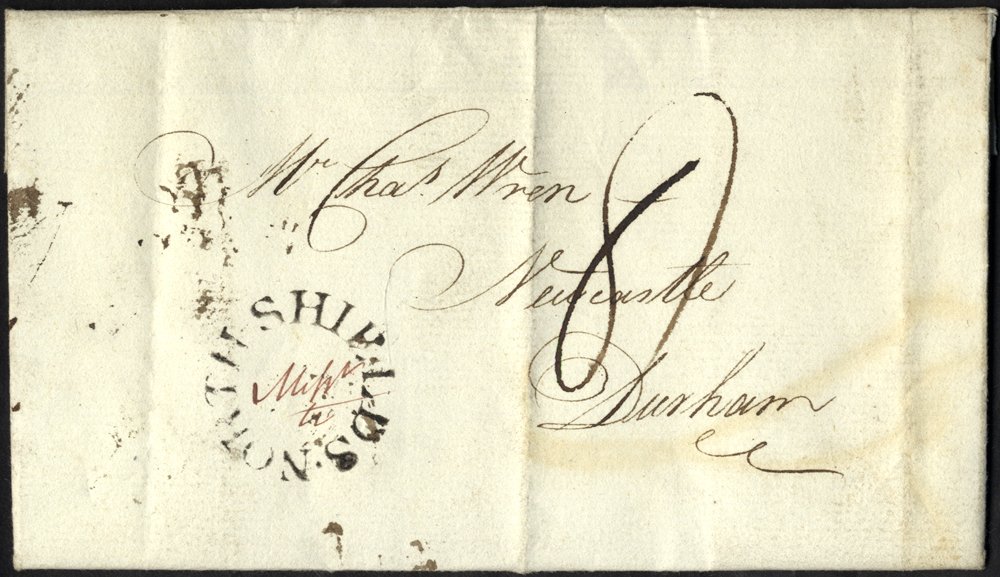 Mr Chas Wren
Newcastle
Durham
8
NORTH SHIELDS
Misst
to